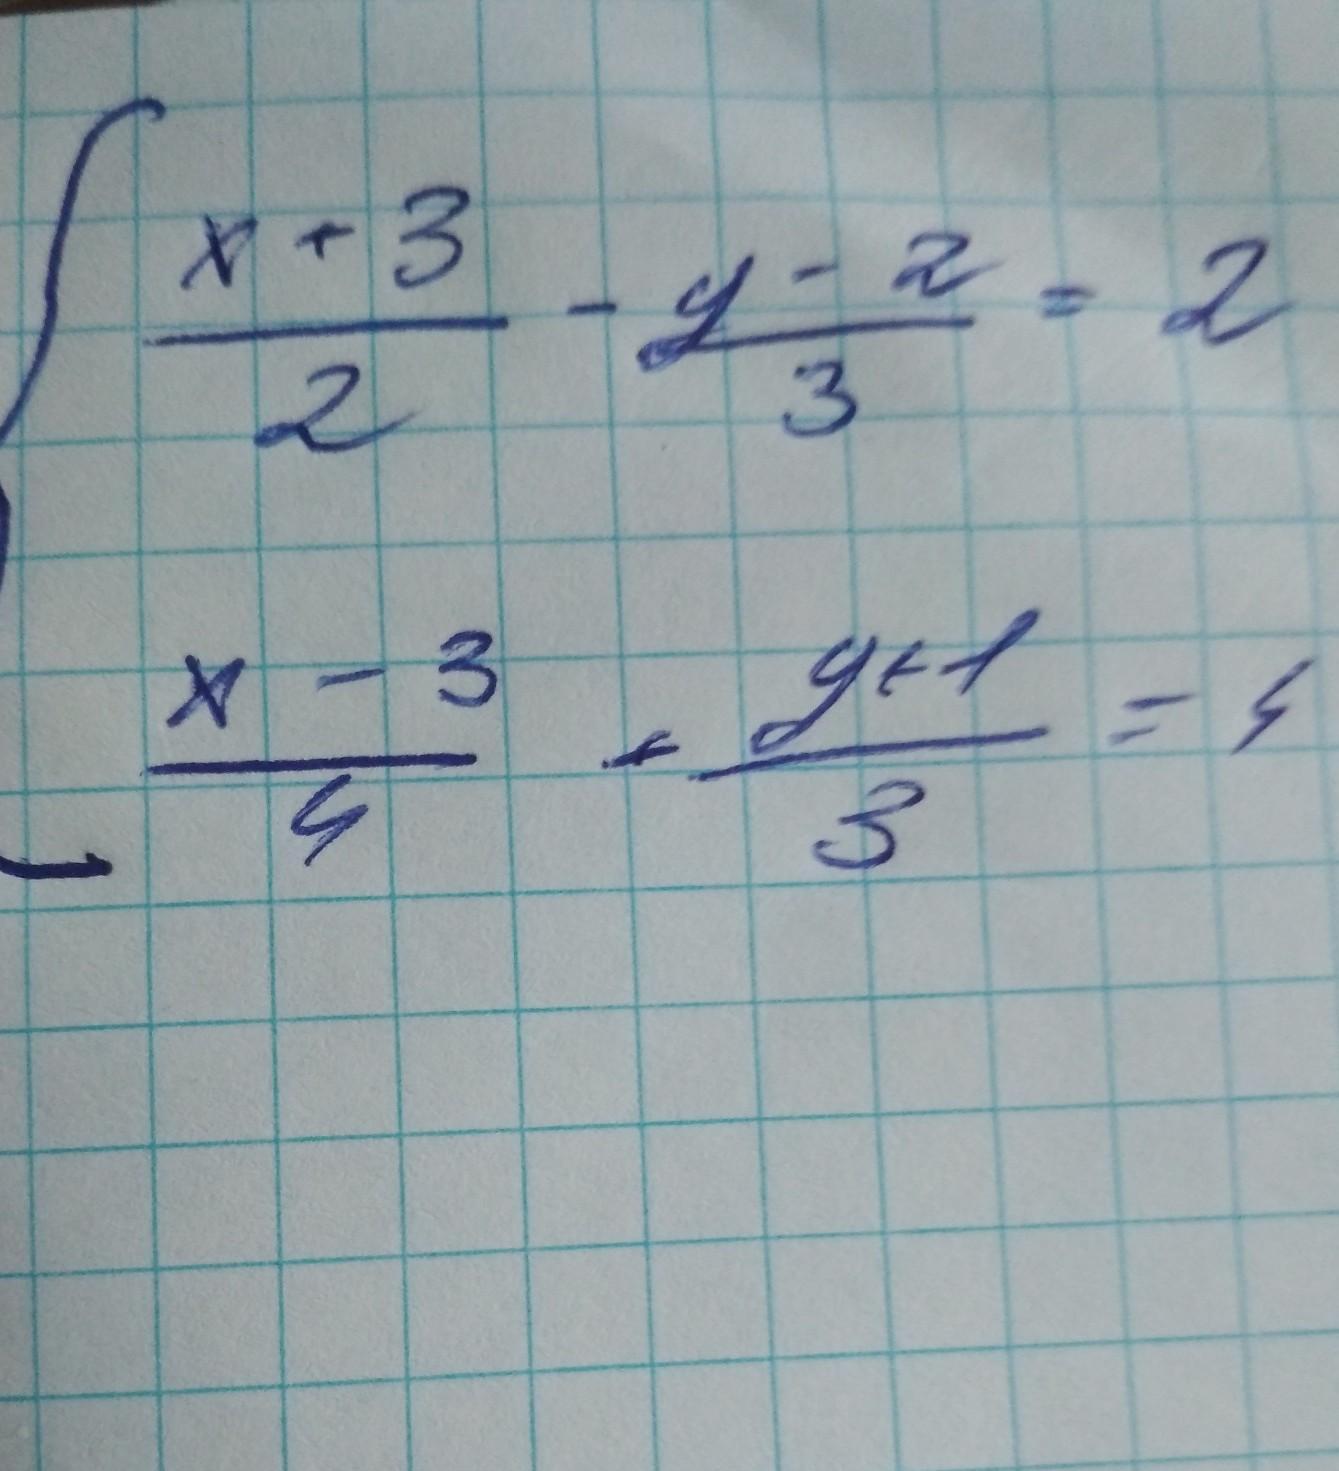 x + 3 / 2 - y - 2 / 3 = 2
x - 3 / 4 + y + 1 / 3 = 4